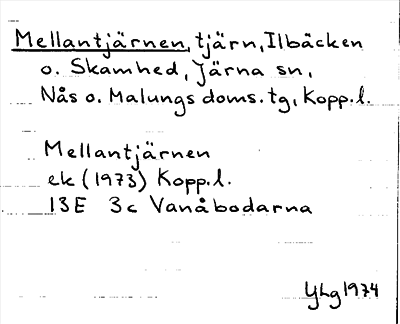 Mellantjärnen, tjärn, Ilbäcken
o. Skamhed, Järna sn,
Nås o. Malungs doms.tg, Kopp.l.
Mellantjärnen
ek (1973) Kopp.l.
13E 3c Vanåbodarna
YLg 1974